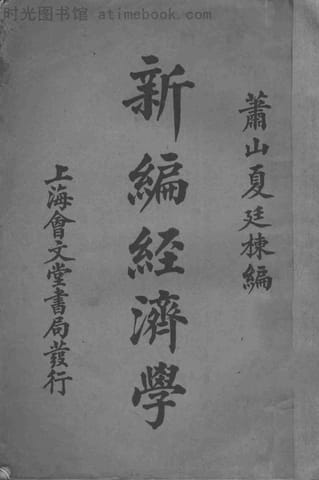 时光图书馆 atimebook.com
蕭山夏廷棟編
新編經濟學
上海會文堂書局發行